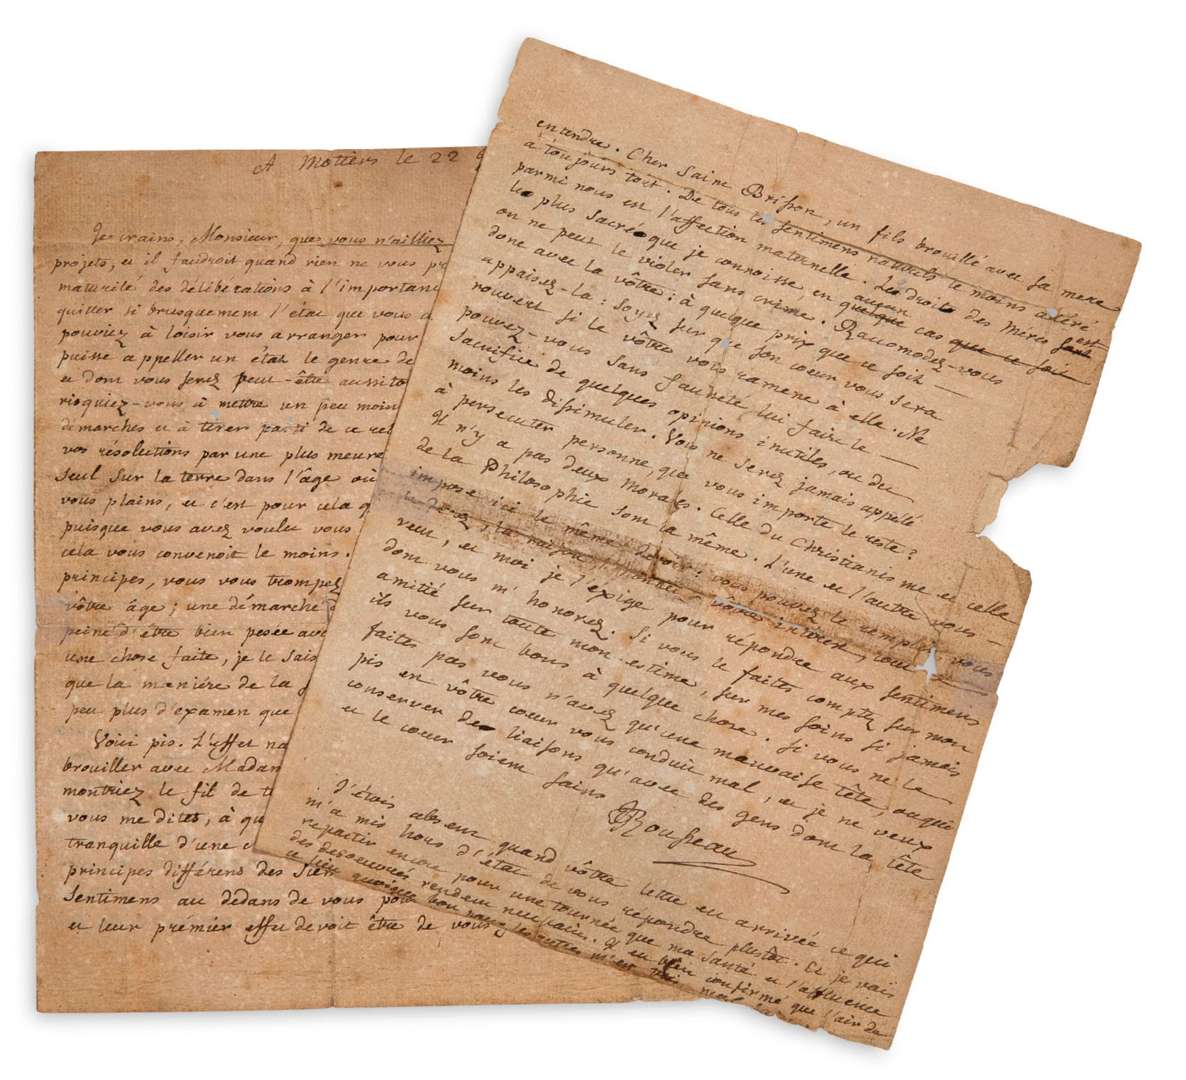 A Motiers le 22
Je crains, Monsieur, que vous n'alliez
projets, et il faudroit quand rien ne vous pr
maturité des délibérations à l'importan
quitter si brusquement l'état que vous a
pouviez à loisir vous arranger pour
puisse appeller un état le genre de
et dont vous serez peut-être aussito
risquiez-vous à mettre un peu moin
démarches et à tirer parti de ce ret
vos résolutions par une plus meure
seul sur la terre dans l'âge où
vous plains, et c'est pour cela q
puisque vous avez voulu vous
cela vous convenoit le moins.
principes, vous vous trompez
vôtre âge; une démarche d
peine d'être bien pesée ava
une chose faite, je le sais
que la maniére de la
peu plus d'examen que
Voici pis. L'effet na
brouiller avec Madam
montriez le fil de t
vous me dites, à qu
tranquille d'une c
principes différens des sien
sentimens au dedans de vous pou
et leur prémier effet devoit être de vous
entendre. Cher Saint Brisson, un fils brouillé avec sa mere
a toujours tort. De tous les sentimens naturels le moins altéré
parmi nous est l'affection maternelle. Le droit des méres est
le plus sacré que je connoisse, en aucun cas
on ne peut le violer sans crime. Racomodez-vous
donc avec la vôtre: à quelque prix que ce soit
appaisez-la: soyez sur que son cœur vous sera
rouvert si le vôtre vous ramene à elle. Ne
pouvez-vous sans fausseté lui faire le
sacrifice de quelques opinions inutiles, ou du
moins les dissimuler. Vous ne serez jamais appelé
à persecuter personne, que vous importe le reste?
Il n'y a pas deux Morales. Celle du Christianisme et celle
de la Philosophie sont la même. L'une et l'autre vous
impose ici le même devoir: vous pouvez le remplir, vous
le devez; la raison, l'honneur, vôtre intérest, tout le
veut, et moi je l'exige pour répondre aux sentimens
dont vous m'honorez. Si vous le faites comptez sur mon
amitié sur toute mon estime, sur mes soins si jamais
ils vous sont bons à quelque chose. Si vous ne le
faites pas vous n'avez qu'une mauvaise tête, ou qui
pis en vôtre cœur vous conduit mal, et je ne veux
conserver de liaisons qu'avec des gens dont la tête
et le cœur soient sains
JJRousseau
J'étois absent quand vôtre lettre est arrivée ce qui
m'a mis hors d'état de vous repondre plustôt. Et je vais
repartir encore pour une tournée que ma santé et l'affluence
des desœuvrés rendent necessaire.